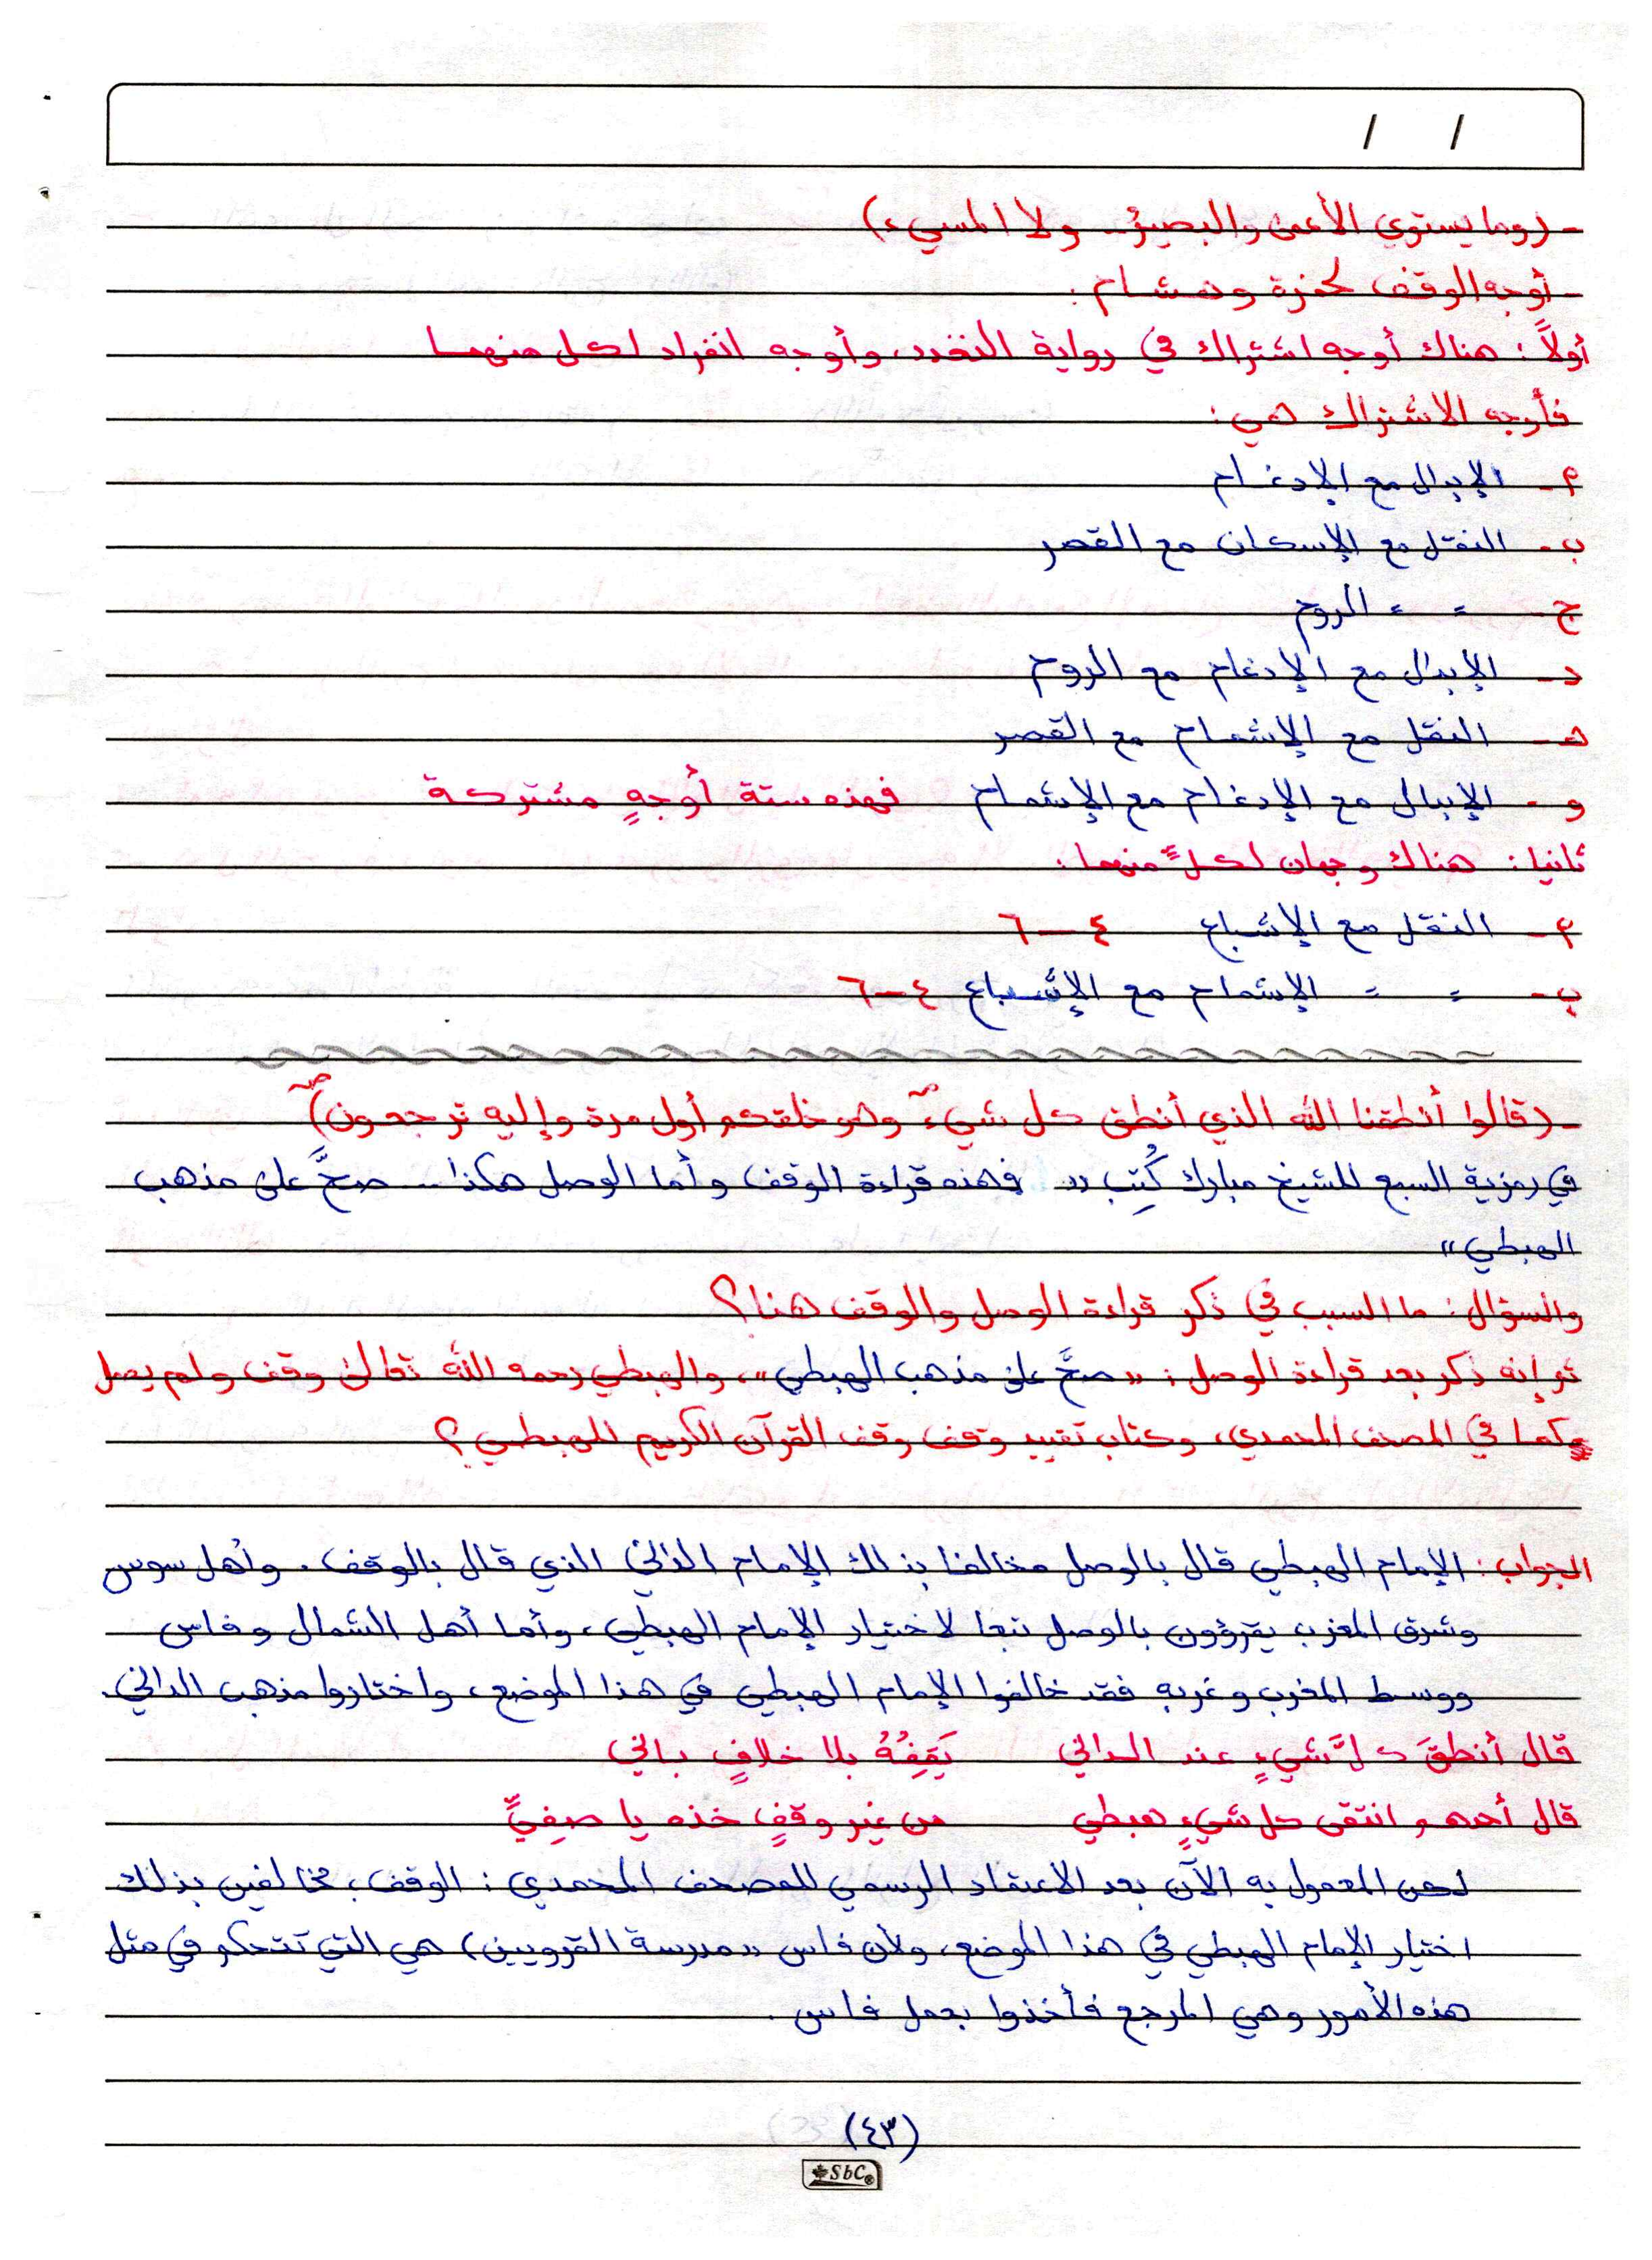 / /
- (وما يستوي الأعمى والبصير.. ولا المسيء)
- أوجه الوقف لحمزة وهشام:
أولاً: هناك أوجه اشتراك في رواية النقد، وأوجه انفراد لكل منهما
فأوجه الاشتراك هي:
أ- الإبدال مع الإدغام
ب- النقل مع الإسكان مع القصر
ج- = = الروم
د- الإبدال مع الإدغام مع الروم
هـ- النقل مع الإشمام مع القصر
و- الإبدال مع الإدغام مع الإشمام فهذه ستة أوجهٍ مشتركة
ثانيا: هناك وجهان لكلٍّ منهما:
أ- النقل مع الإشباع ٤-٦
ب- = = الإشمام مع الإشباع ٤-٦
- (قالوا أنطقنا الله الذي أنطق كل شيءٍ صـ وهو خلقكم أول مرة وإليه ترجعون) صـ
في رمزية السبع للشيخ مبارك كُتِب "فهذه قراءة الوقف وأما الوصل هكذا.. صحَّ على مذهب
الهبطي"
والسؤال: ما السبب في ذكر قراءة الوصل والوقف هنا؟
ثم إنه ذكر بعد قراءة الوصل: "صحَّ على مذهب الهبطي"، والهبطي رحمه الله تعالى وقف ولم يصل
كما في المصحف المحمدي، وكتاب تقييد وقف القرآن الكريم للهبطي؟
الجواب: الإمام الهبطي قال بالوصل مخالفا بذلك الإمام الداني الذي قال بالوقف. وأهل سوس
وشرق المغرب يقرؤون بالوصل تبعا لاختيار الإمام الهبطي، وأما أهل الشمال وفاس
ووسط المغرب وغربه فقد خالفوا الإمام الهبطي في هذا الموضع، واختاروا مذهب الداني.
قال أنطقَ كلَّ شيءٍ عند الداني يَقِفُهُ بلا خلافٍ باني
قال أحمد وانتقى كل شيءٍ هبطي من غير وقفٍ خذه يا صفِيِّ
لكن المعمول به الآن بعد الاعتماد الرسمي للمصحف المحمدي: الوقف، مخالفين بذلك
اختيار الإمام الهبطي في هذا الموضع، ولأن فاس "مدرسة القرويين) هي التي تتحكم في مثل
هذه الأمور وهي المرجع فأخذوا بعمل فاس.
(٤٣)
SbC